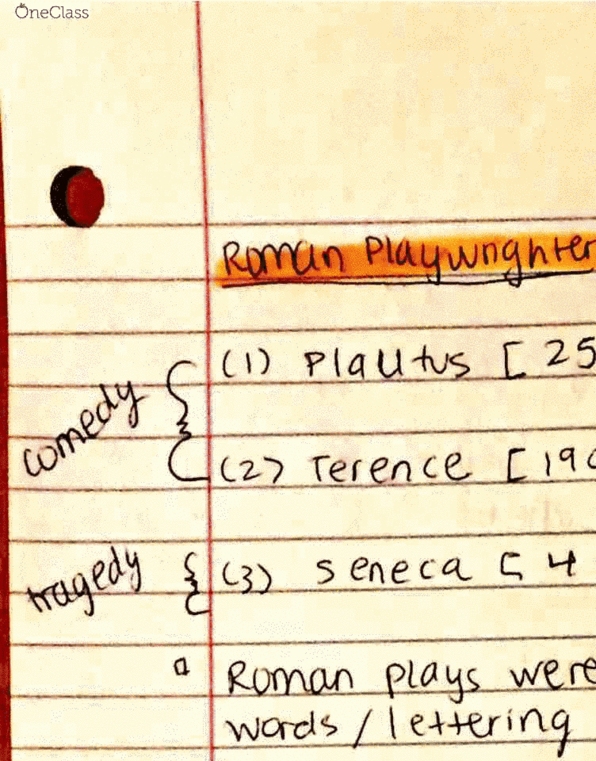 OneClass
Roman Playwrighter
comedy
(1) Plautus [ 25
(2) Terence [ 190
tragedy
(3) Seneca [ 4
Roman plays were
words / lettering